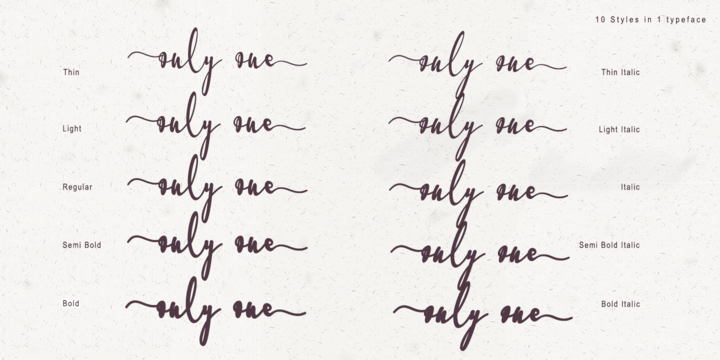 10 Styles in 1 typeface
Thin only one only one Thin Italic
Light only one only one Light Italic
Regular only one only one Italic
Semi Bold only one only one Semi Bold Italic
Bold only one only one Bold Italic